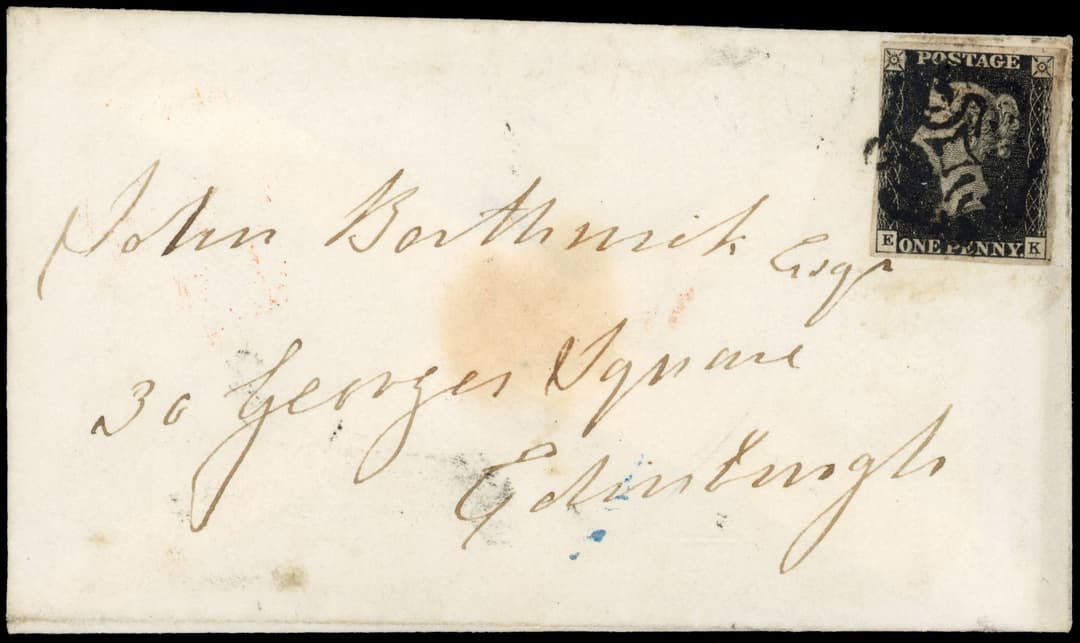 POSTAGE
E ONE PENNY. K
John Borthwick Esqr
30 Georges Square
Edinburgh